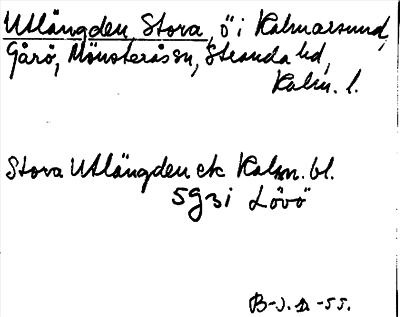 Utlängden, Stora, ö i Kalmarsund,
Gårö, Mönsterås sn, Stranda hd,
Kalm. l.
Stora Utlängden ek Kalm. bl.
5g3i Lövö
B-J. D. -55.